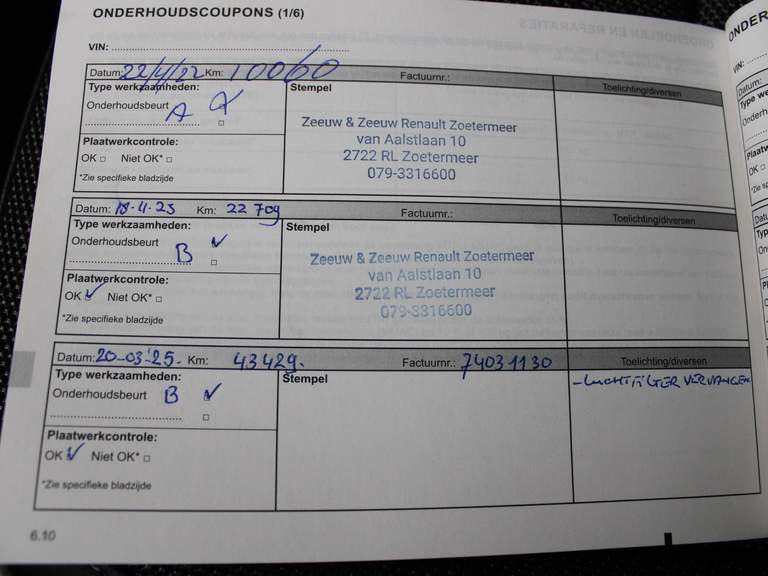 ONDERHOUDSCOUPONS (1/6)
VIN:
Datum: 22/4/22 Km: 10060 Factuurnr.:
Type werkzaamheden: Stempel Toelichting/diversen
Onderhoudsbeurt A
Zeeuw & Zeeuw Renault Zoetermeer
van Aalstlaan 10
2722 RL Zoetermeer
079-3316600
Plaatwerkcontrole:
OK □ Niet OK* □
*Zie specifieke bladzijde
Datum: 18-4-23 Km: 22 709 Factuurnr.: Toelichting/diversen
Type werkzaamheden: Stempel
Onderhoudsbeurt B ✓
Zeeuw & Zeeuw Renault Zoetermeer
van Aalstlaan 10
2722 RL Zoetermeer
079-3316600
Plaatwerkcontrole:
OK ✓ Niet OK* □
*Zie specifieke bladzijde
Datum: 20-03-'25. Km: 43429. Factuurnr.: 74031130 Toelichting/diversen
Type werkzaamheden: Stempel
Onderhoudsbeurt B ✓
- LUCHTFILTER VERVANGEN
Plaatwerkcontrole:
OK ✓ Niet OK* □
*Zie specifieke bladzijde
6.10
ONDER
VIN:
Datum: